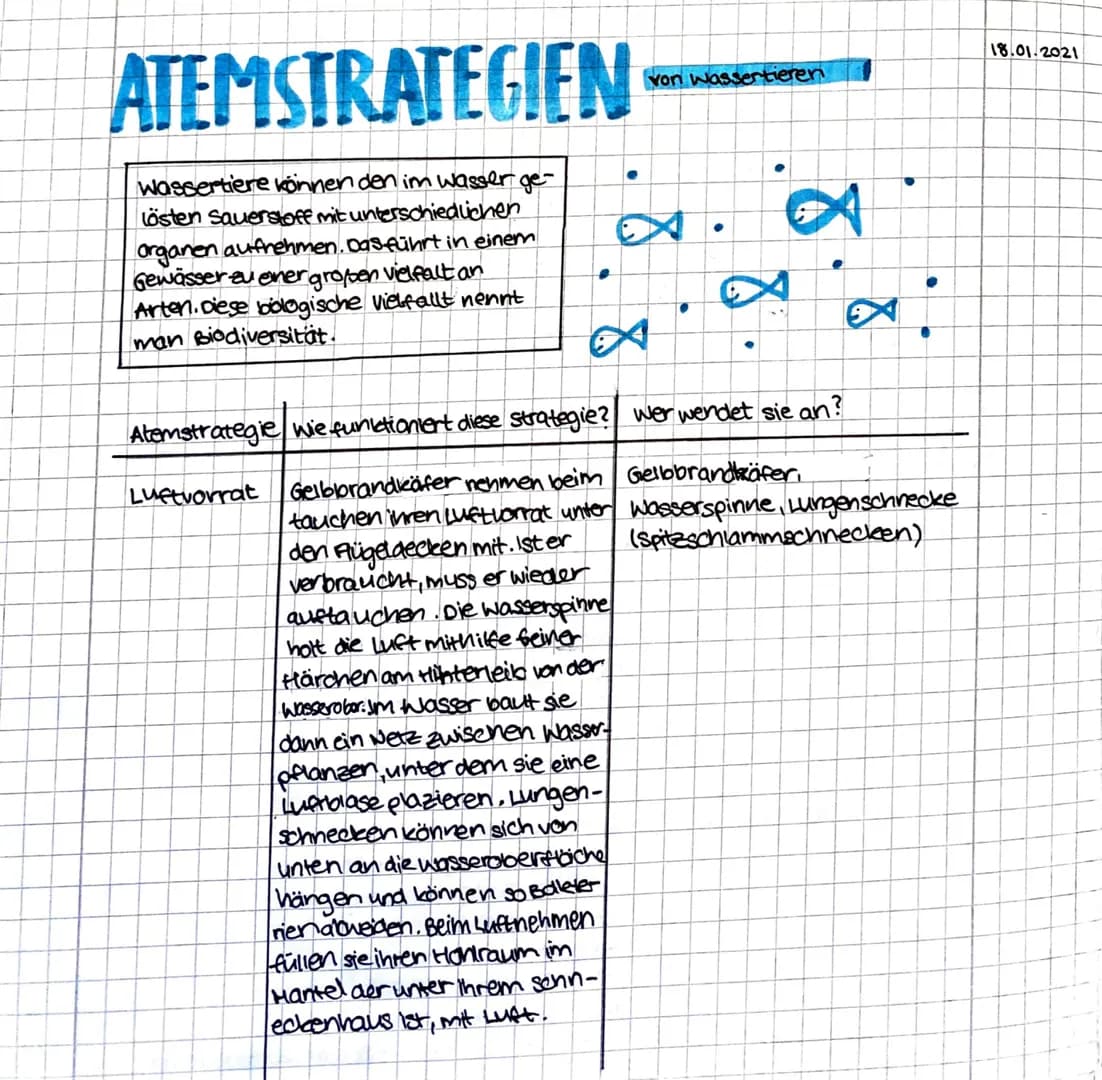 18.01.2021
ATEMSTRATEGIEN von Wassertieren
Wassertiere können den im Wasser ge-
lösten Sauerstoff mit unterschiedlichen
Organen aufnehmen. Das führt in einem
Gewässer zu einer großen Vielfalt an
Arten. Diese biologische Vielfallt nennt
man Biodiversität.
Atemstrategie | Wie funktioniert diese Strategie? | Wer wendet sie an?
Luftvorrat
Gelbbrandkäfer nehmen beim
tauchen ihren Luftvorrat unter
den Flügeldecken mit. Ist er
verbraucht, muss er wieder
auftauchen. Die Wasserspinne
holt die Luft mithilfe feiner
Härchen am Hinterleib von der
Wasserober. Im Wasser baut sie
dann ein Netz zwischen Wasser-
pflanzen, unter dem sie eine
Luftblase plazieren. Lungen-
schnecken können sich von
unten an die Wasseroberfläche
hängen und können so Bakter
rien abweiden. Beim Luftnehmen
füllen sie ihren Hohlraum im
Mantel der unter ihrem schn-
eckenhaus ist, mit Luft.
Gelbbrandkäfer,
Wasserspinne, Lungenschnecke
(Spitzschlammschnecken)